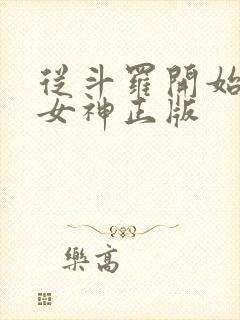 從斗羅開始
女神正版
樂高